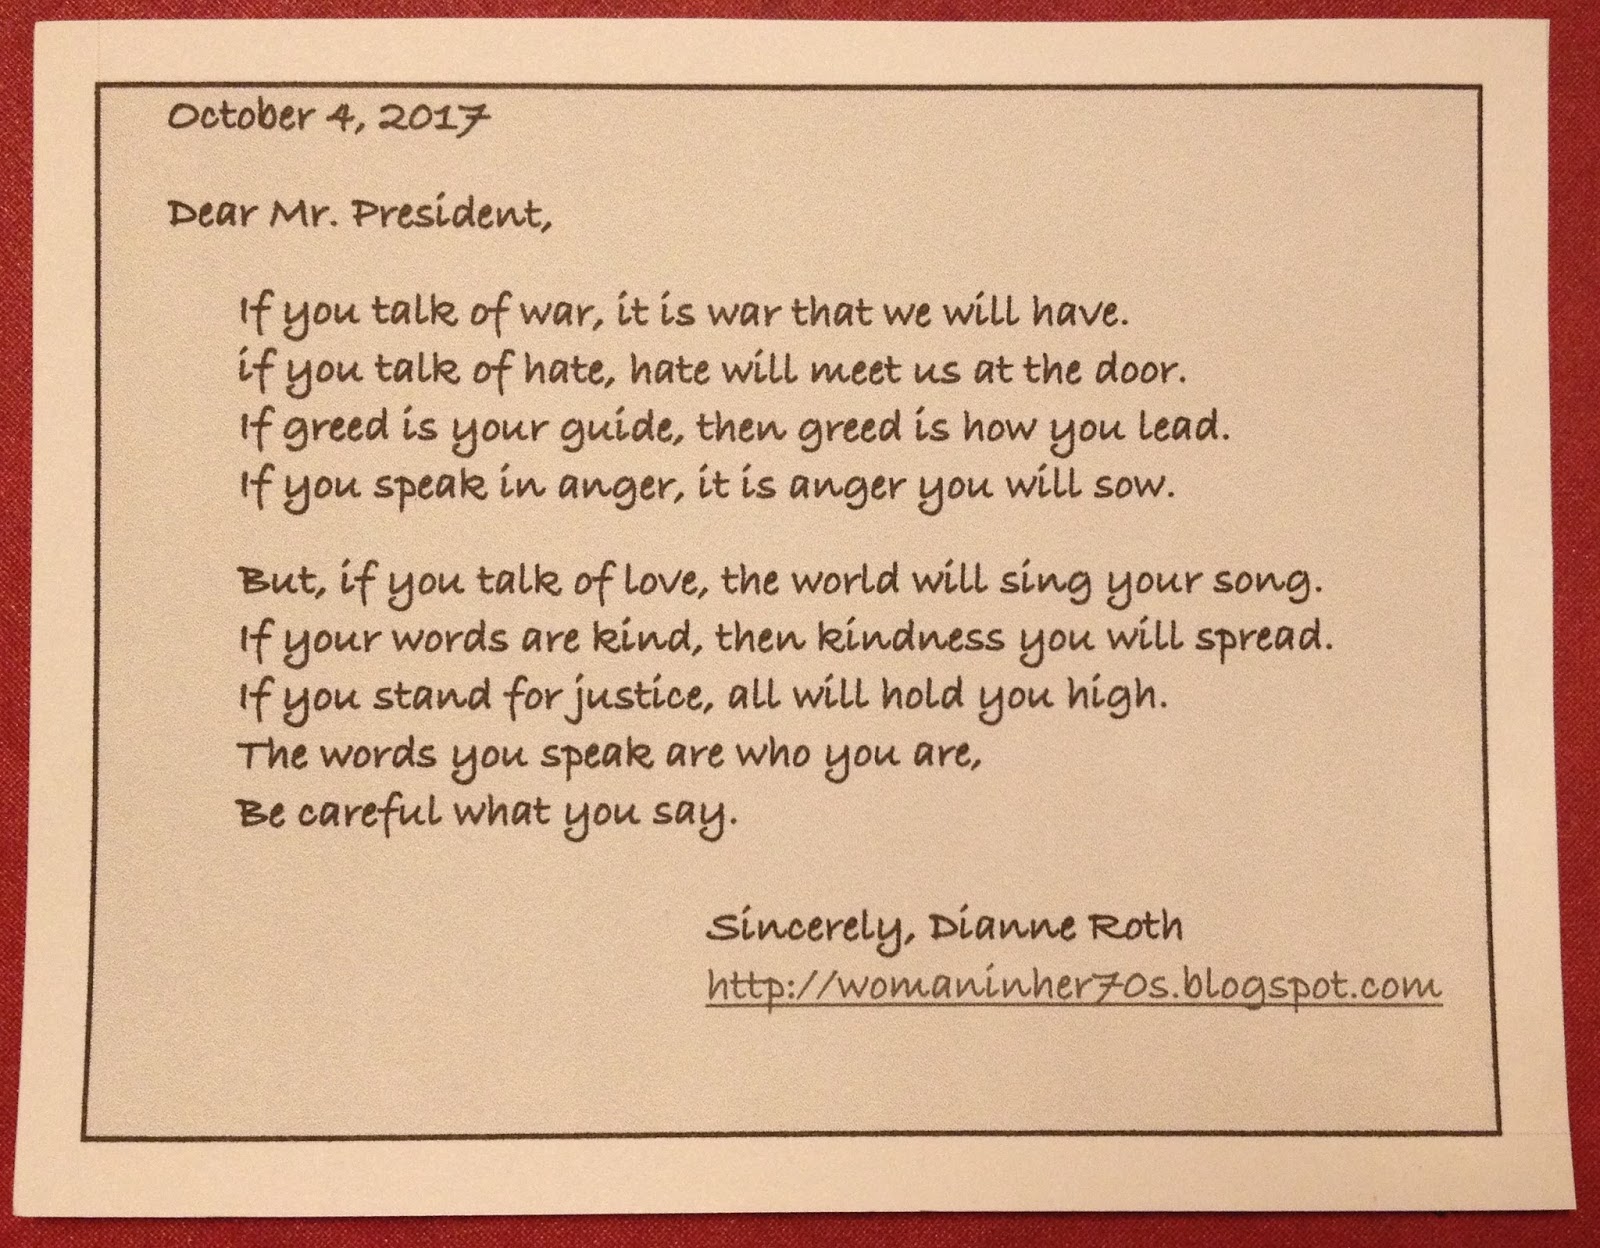 October 4, 2017
Dear Mr. President,
If you talk of war, it is war that we will have.
if you talk of hate, hate will meet us at the door.
If greed is your guide, then greed is how you lead.
If you speak in anger, it is anger you will sow.
But, if you talk of love, the world will sing your song.
If your words are kind, then kindness you will spread.
If you stand for justice, all will hold you high.
The words you speak are who you are,
Be careful what you say.
Sincerely, Dianne Roth
http://womaninher70s.blogspot.com